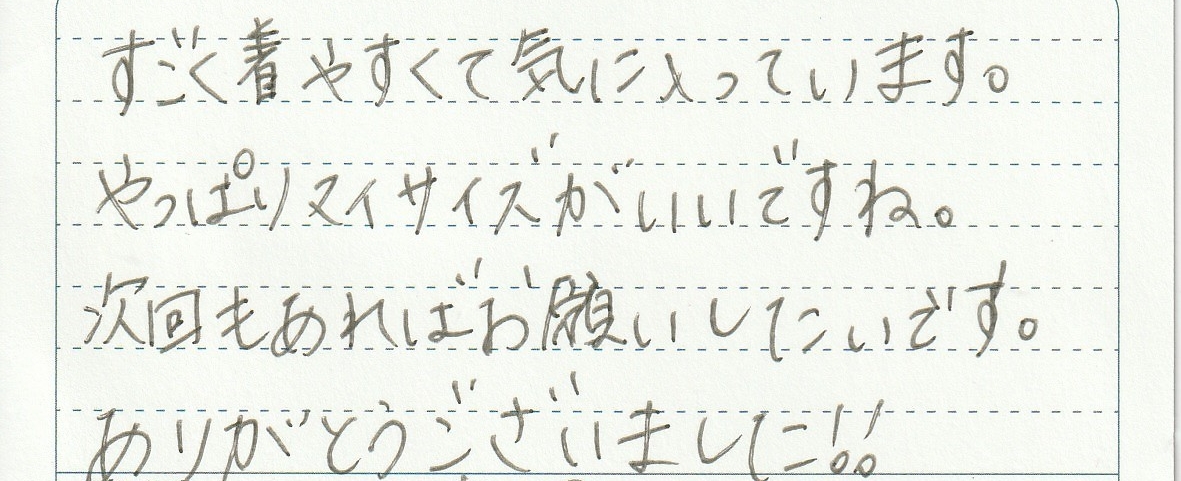 すごく着やすくて気に入っています。
やっぱりマイサイズがいいですね。
次回もあればお願いしたいです。
ありがとうございました!!